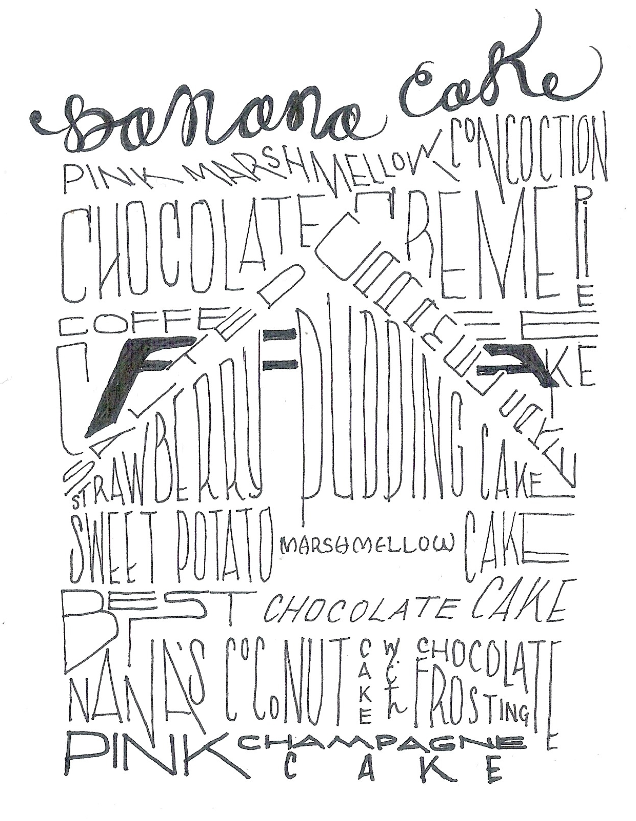 banana cake
PINK MARSHMELLOW CONCOCTION
CHOCOLATE CREME PIE
COFFEE
CAKE
STRAWBERRY PUDDING CAKE
SWEET POTATO MARSHMELLOW CAKE
BEST CHOCOLATE CAKE
NANA'S COCONUT CAKE with CHOCOLATE FROSTING
PINK CHAMPAGNE CAKE